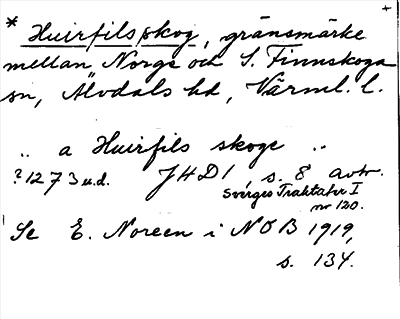 * Huirfils/skog, gränsmärke +
mellan Norge och S. Finnskoga
sn, Älvdals hd, Värml. l.
.. a Huirfils skoge ..
? 1273 u.d. JHD 1 s. 8 avtr.
Sverges Traktater I
nr 120.
Se E. Noreen i NOB 1919,
s. 134.